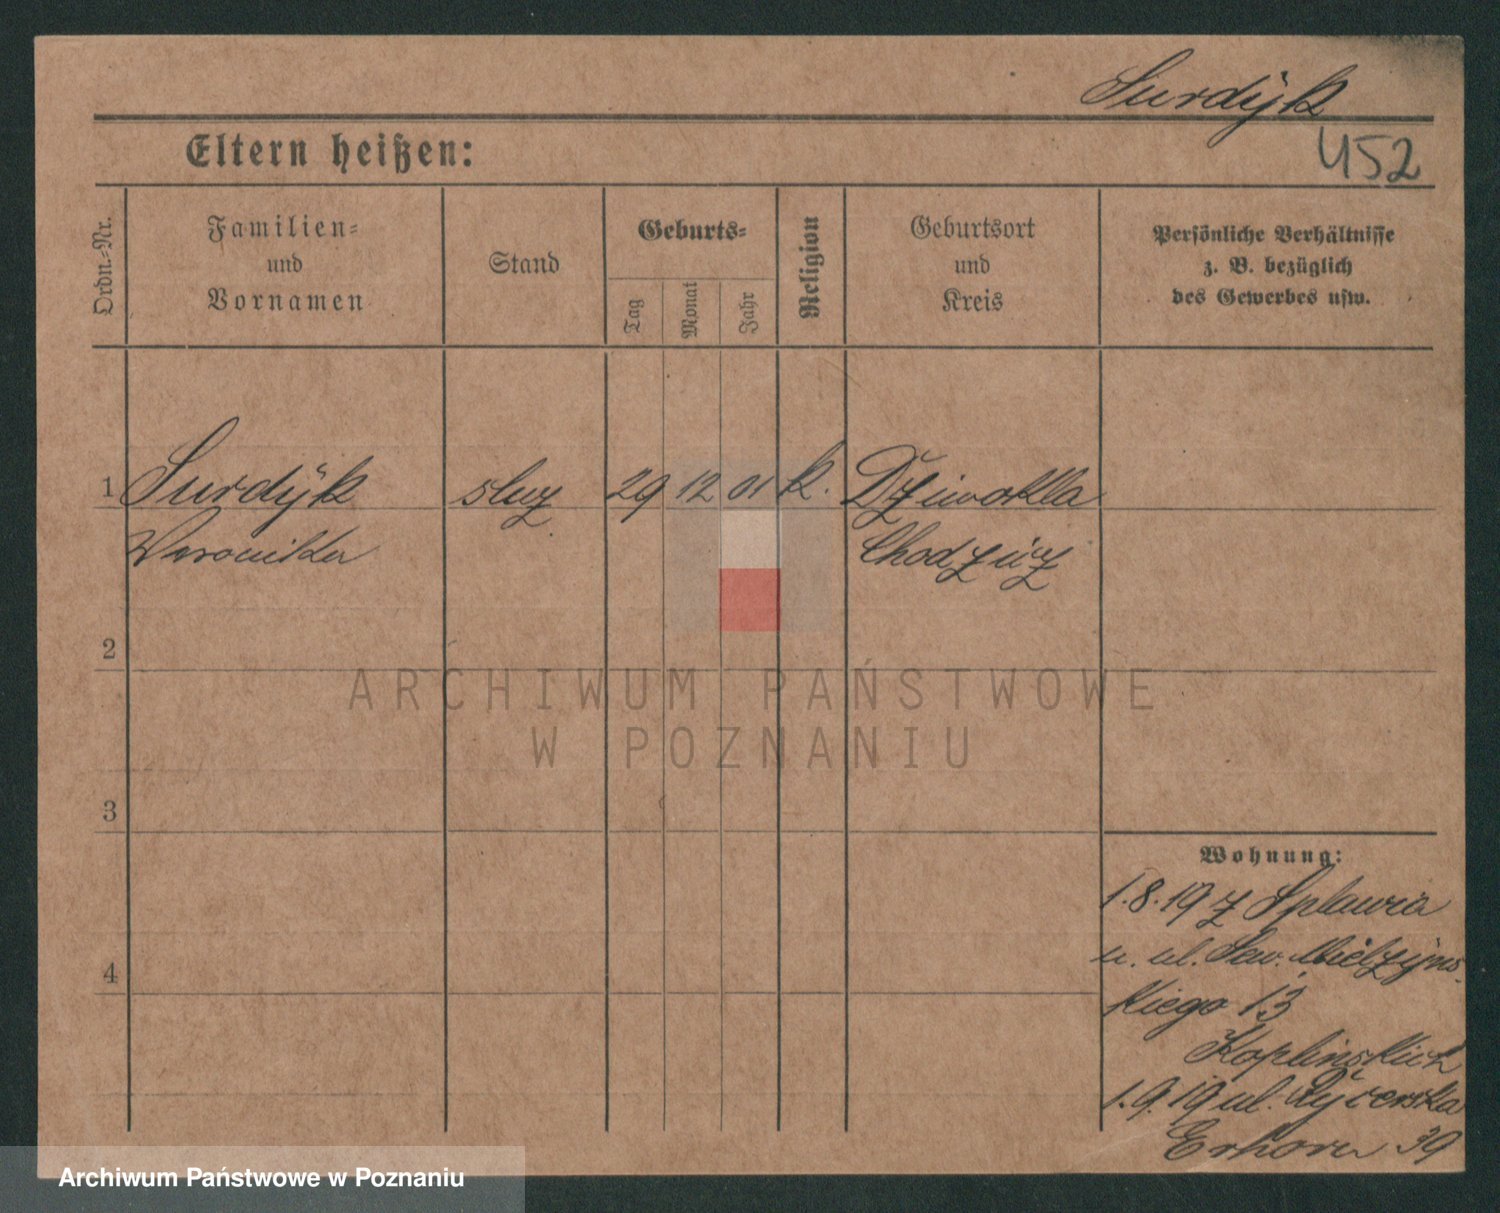 Surdyk
452
Eltern heißen:
Ordn.-Nr.
Familien-
und
Vornamen
Stand
Geburts-
Tag
Monat
Jahr
Religion
Geburtsort
und
Kreis
Persönliche Verhältnisse
z. B. bezüglich
des Gewerbes usw.
1 Surdyk służ 29 12 01 k. Dziwokla
Weronika Chodzież
2
3
4
Wohnung:
1.8.19 z Spławia
u. ul. Sew. Mielżyńs-
kiego 13
Koplińskich
1.9.19 ul. Rycerska
39
ARCHIWUM PAŃSTWOWE
W POZNANIU
Archiwum Państwowe w Poznaniu